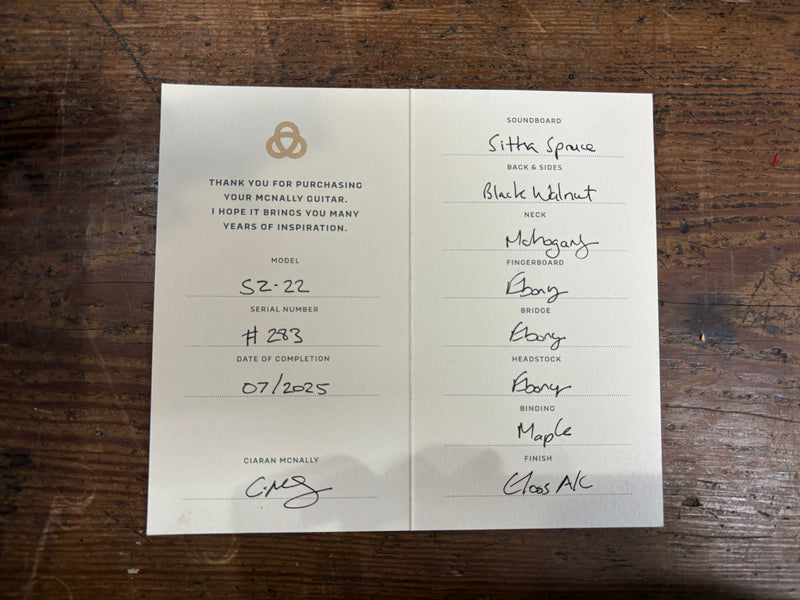 THANK YOU FOR PURCHASING
YOUR MCNALLY GUITAR.
I HOPE IT BRINGS YOU MANY
YEARS OF INSPIRATION.
MODEL
S2-22
SERIAL NUMBER
# 283
DATE OF COMPLETION
07/2025
CIARAN MCNALLY
C.McG
SOUNDBOARD
Sitka Spruce
BACK & SIDES
Black Walnut
NECK
Mahogany
FINGERBOARD
Ebony
BRIDGE
Ebony
HEADSTOCK
Ebony
BINDING
Maple
FINISH
Gloss A/C